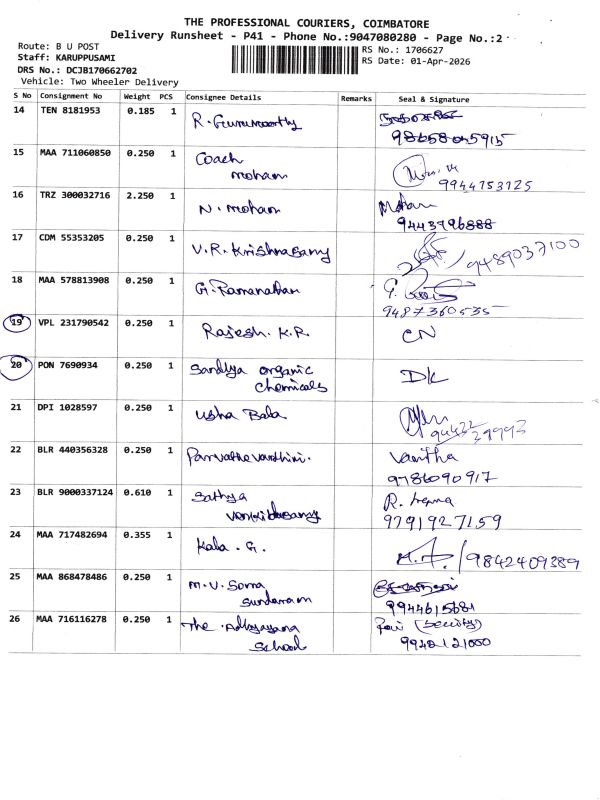 THE PROFESSIONAL COURIERS, COIMBATORE
Delivery Runsheet - P41 - Phone No.:9047080280 - Page No.:2
Route: B U POST
RS No.: 1706627
Staff: KARUPPUSAMI
RS Date: 01-Apr-2026
DRS No.: DCJB170662702
Vehicle: Two Wheeler Delivery
S No Consignment No Weight PCS Consignee Details Remarks Seal & Signature
14 TEN 8181953 0.185 1 R. Gurumoorthy
9865805915
15 MAA 711060850 0.250 1 Coach
moham
9944753125
16 TRZ 300032716 2.250 1 N. moham Mohan
9443796888
17 CDM 55353205 0.250 1 V.R. Krishnasamy 9489037100
18 MAA 578813908 0.250 1 G. Ramanathan
9487360535
19 VPL 231790542 0.250 1 Rajesh. K.R. CN
20 PON 7690934 0.250 1 Sandhya organic DK
chemicals
21 DPI 1028597 0.250 1 Usha Bala
94422 29993
22 BLR 440356328 0.250 1 Parvathavardhini. Vanitha
9786090917
23 BLR 9000337124 0.610 1 Sathya R.
Venkidusamy 9791927159
24 MAA 717482694 0.355 1 Kala. G. /9842409389
25 MAA 868478486 0.250 1 M.V. Soma
Sundaram 9944615681
26 MAA 716116278 0.250 1 The Adhyayana Ravi (Security)
School 9940121000